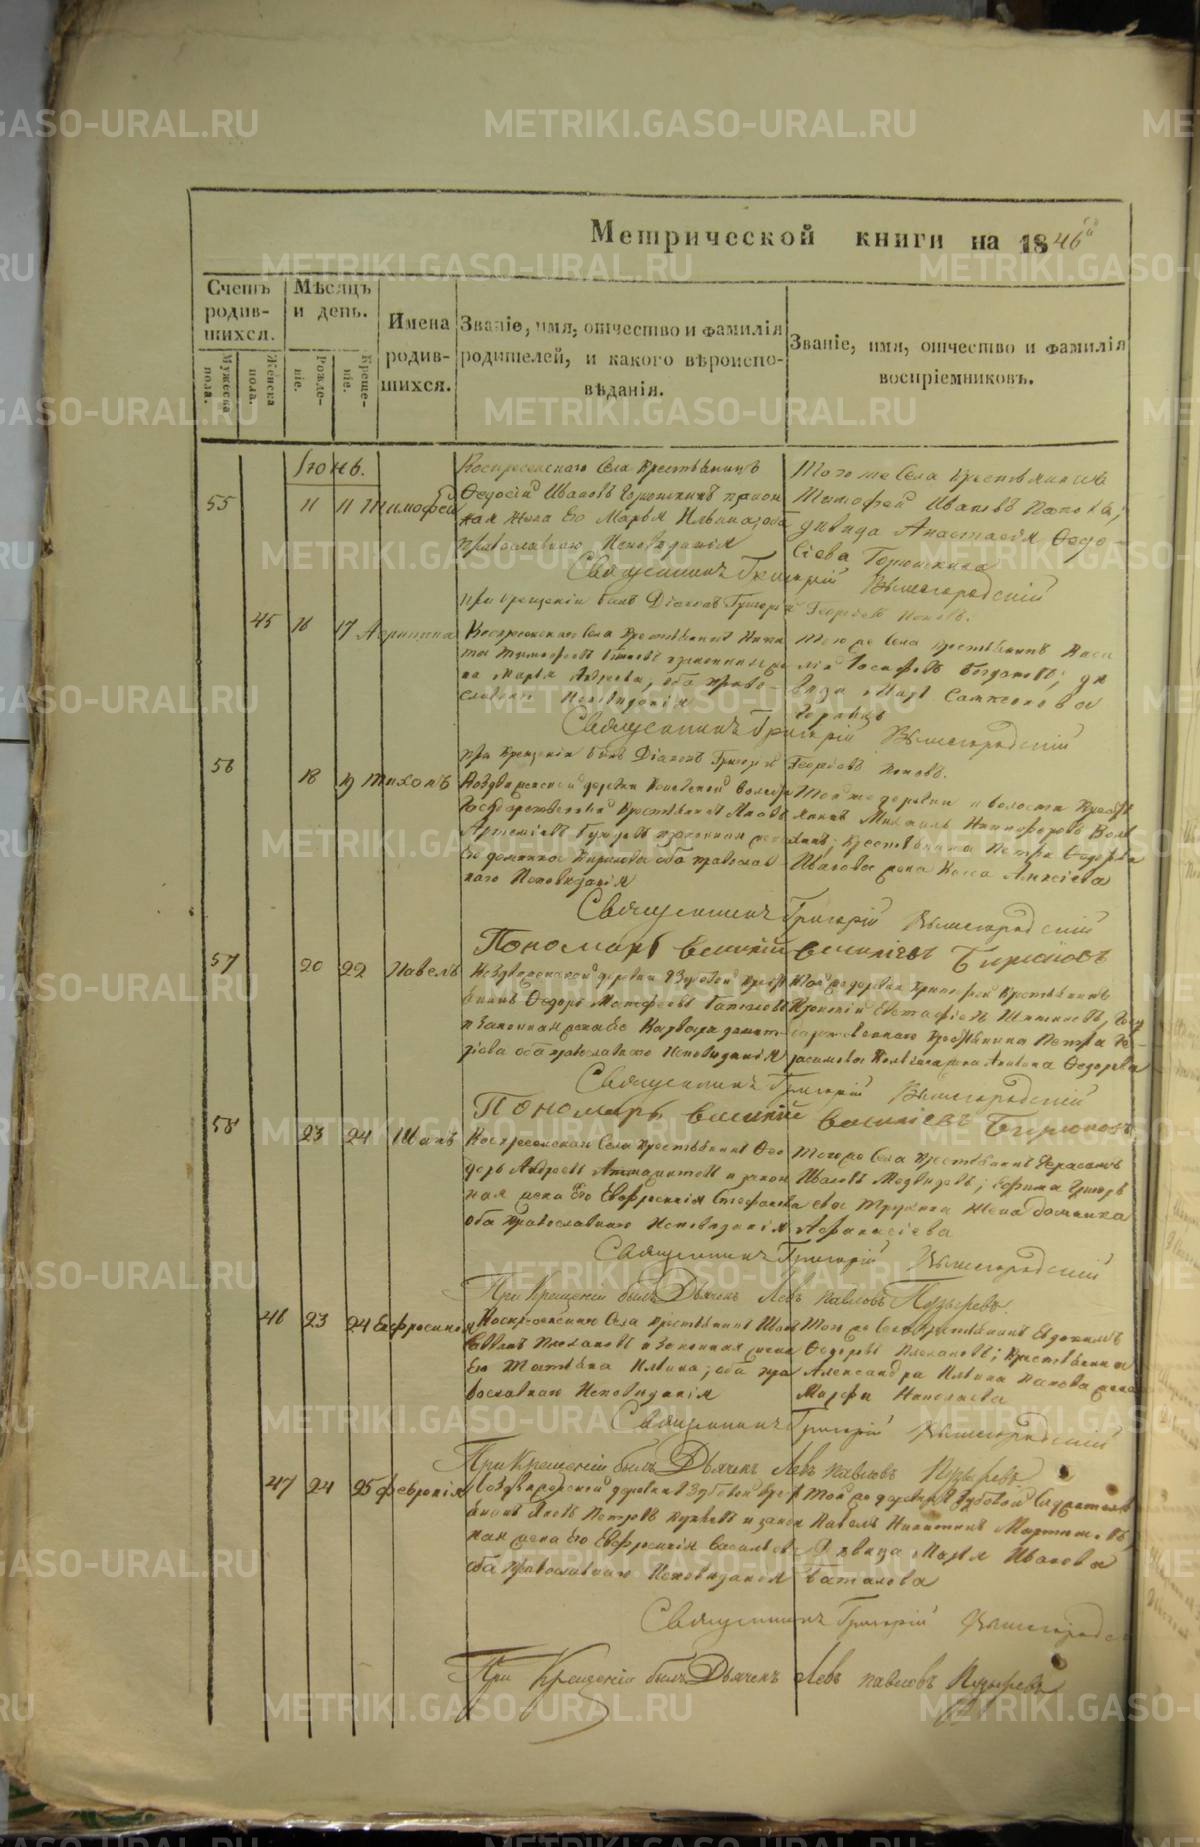 METRIKI.GASO-URAL.RU
Метрической книги на 1846й
Счетъ родив-шихся.
Мѣсяцъ и день.
Имена родив-шихся.
Званіе, имя, отчество и фамилія родителей, и какого вѣроиспо-вѣданія.
Званіе, имя, отчество и фамилія воспріемниковъ.
Мужеска пола.
Женска пола.
Рожде-ніе.
Креще-ніе.
Іюнь.
55 11 11 Тимофей
Воскресенскаго Села Крестьянинъ
Ѳедосій Ивановъ Горюшкинъ и закон
ная жена его Марья Ильина, оба
православнаго Исповѣданія
Того же Села Крестьянинъ
Тимофей Ивановъ Поповъ;
дѣвица Анастасія Ѳедо-
сіева Горюшкина
Священникъ Григорій Вышегородскій
При крещеніи былъ Діаконъ Григорій Георгіевъ Поповъ.
45 16 17 Агрипина
Воскресенскаго Села Крестьянинъ Ники
та Тимофеевъ и законная же
на Марья Андреева, оба право-
славнаго Исповѣданія
Того же Села крестьянинъ Васи
лій Іосифовъ Богдановъ; дѣ
вица Марѳа Сампсонова
Священникъ Григорій Вышегородскій
при Крещеніи былъ Діаконъ Григорій Георгіевъ Поповъ.
56 18 19 Тихонъ
деревни волости
Государственный Крестьянинъ Яковъ
Артеміевъ и законная жена
его Домника Кирилова оба православ
наго Исповѣданія
Той же деревни и волости Кресть
янинъ Михаилъ Никифоровъ
Крестьянина Петра Ѳедорова
Иванова жена
Священникъ Григорій Вышегородскій
Пономарь Василій Василіевъ Бирюковъ
57 20 22 Павелъ
деревни Зубовой Крест
янинъ Ѳедоръ Матфеевъ
и законная жена его Варвара Димит
ріева оба православнаго Исповѣданія
Той же деревни Крестьянинъ
Евстафіевъ
Крестьянина Петра Ге
расимова жена Ѳедорова
Священникъ Григорій Вышегородскій
Пономарь Василій Василіевъ Бирюковъ
58 23 24 Іванъ
Воскресенскаго Села Крестьянинъ Ѳео
доръ Андреевъ и закон
ная жена его Евфросинія Стефанова
оба православнаго Исповѣданія
Того же Села Крестьянинъ Герасимъ
Ивановъ Медвѣдевъ; Ефима Григорь
ева жена Домника
Афанасіева
Священникъ Григорій Вышегородскій
При Крещеніи былъ Дьячекъ Левъ Павловъ Пузыревъ.
46 23 24 Евфросинія
Воскресенскаго Села Крестьянинъ Іванъ
Саввинъ Плехановъ и законная жена
его Татьяна Ильина; оба пра
вославнаго Исповѣданія
Того же Села Крестьянинъ Евдокимъ
Ѳедоровъ Плехановъ; Крестьянина
Александра Ильина Попова жена
Марфа Николаева
Священникъ Григорій Вышегородскій
При Крещеніи былъ Дьячекъ Левъ Павловъ Пузыревъ
47 24 25 Февронія
деревни Зубовой Крест
янинъ Яковъ Петровъ и закон
ная жена его Евфросинія Васильева
оба православнаго Исповѣданія
Той же деревни Зубовой
Павелъ Никитинъ
дѣвица Марья Иванова
Баталова
Священникъ Григорій Вышегородс
При Крещеніи былъ Дьячекъ Левъ Павловъ Пузыревъ